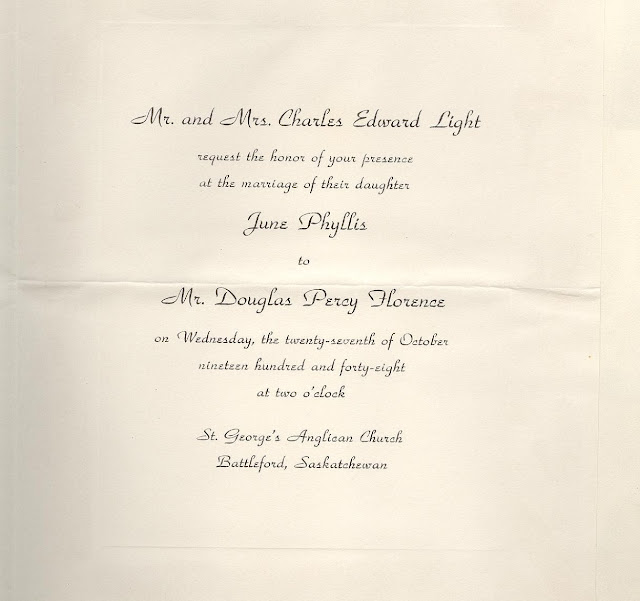 Mr. and Mrs. Charles Edward Light
request the honor of your presence
at the marriage of their daughter
June Phyllis
to
Mr. Douglas Percy Florence
on Wednesday, the twenty-seventh of October
nineteen hundred and forty-eight
at two o'clock
St. George's Anglican Church
Battleford, Saskatchewan